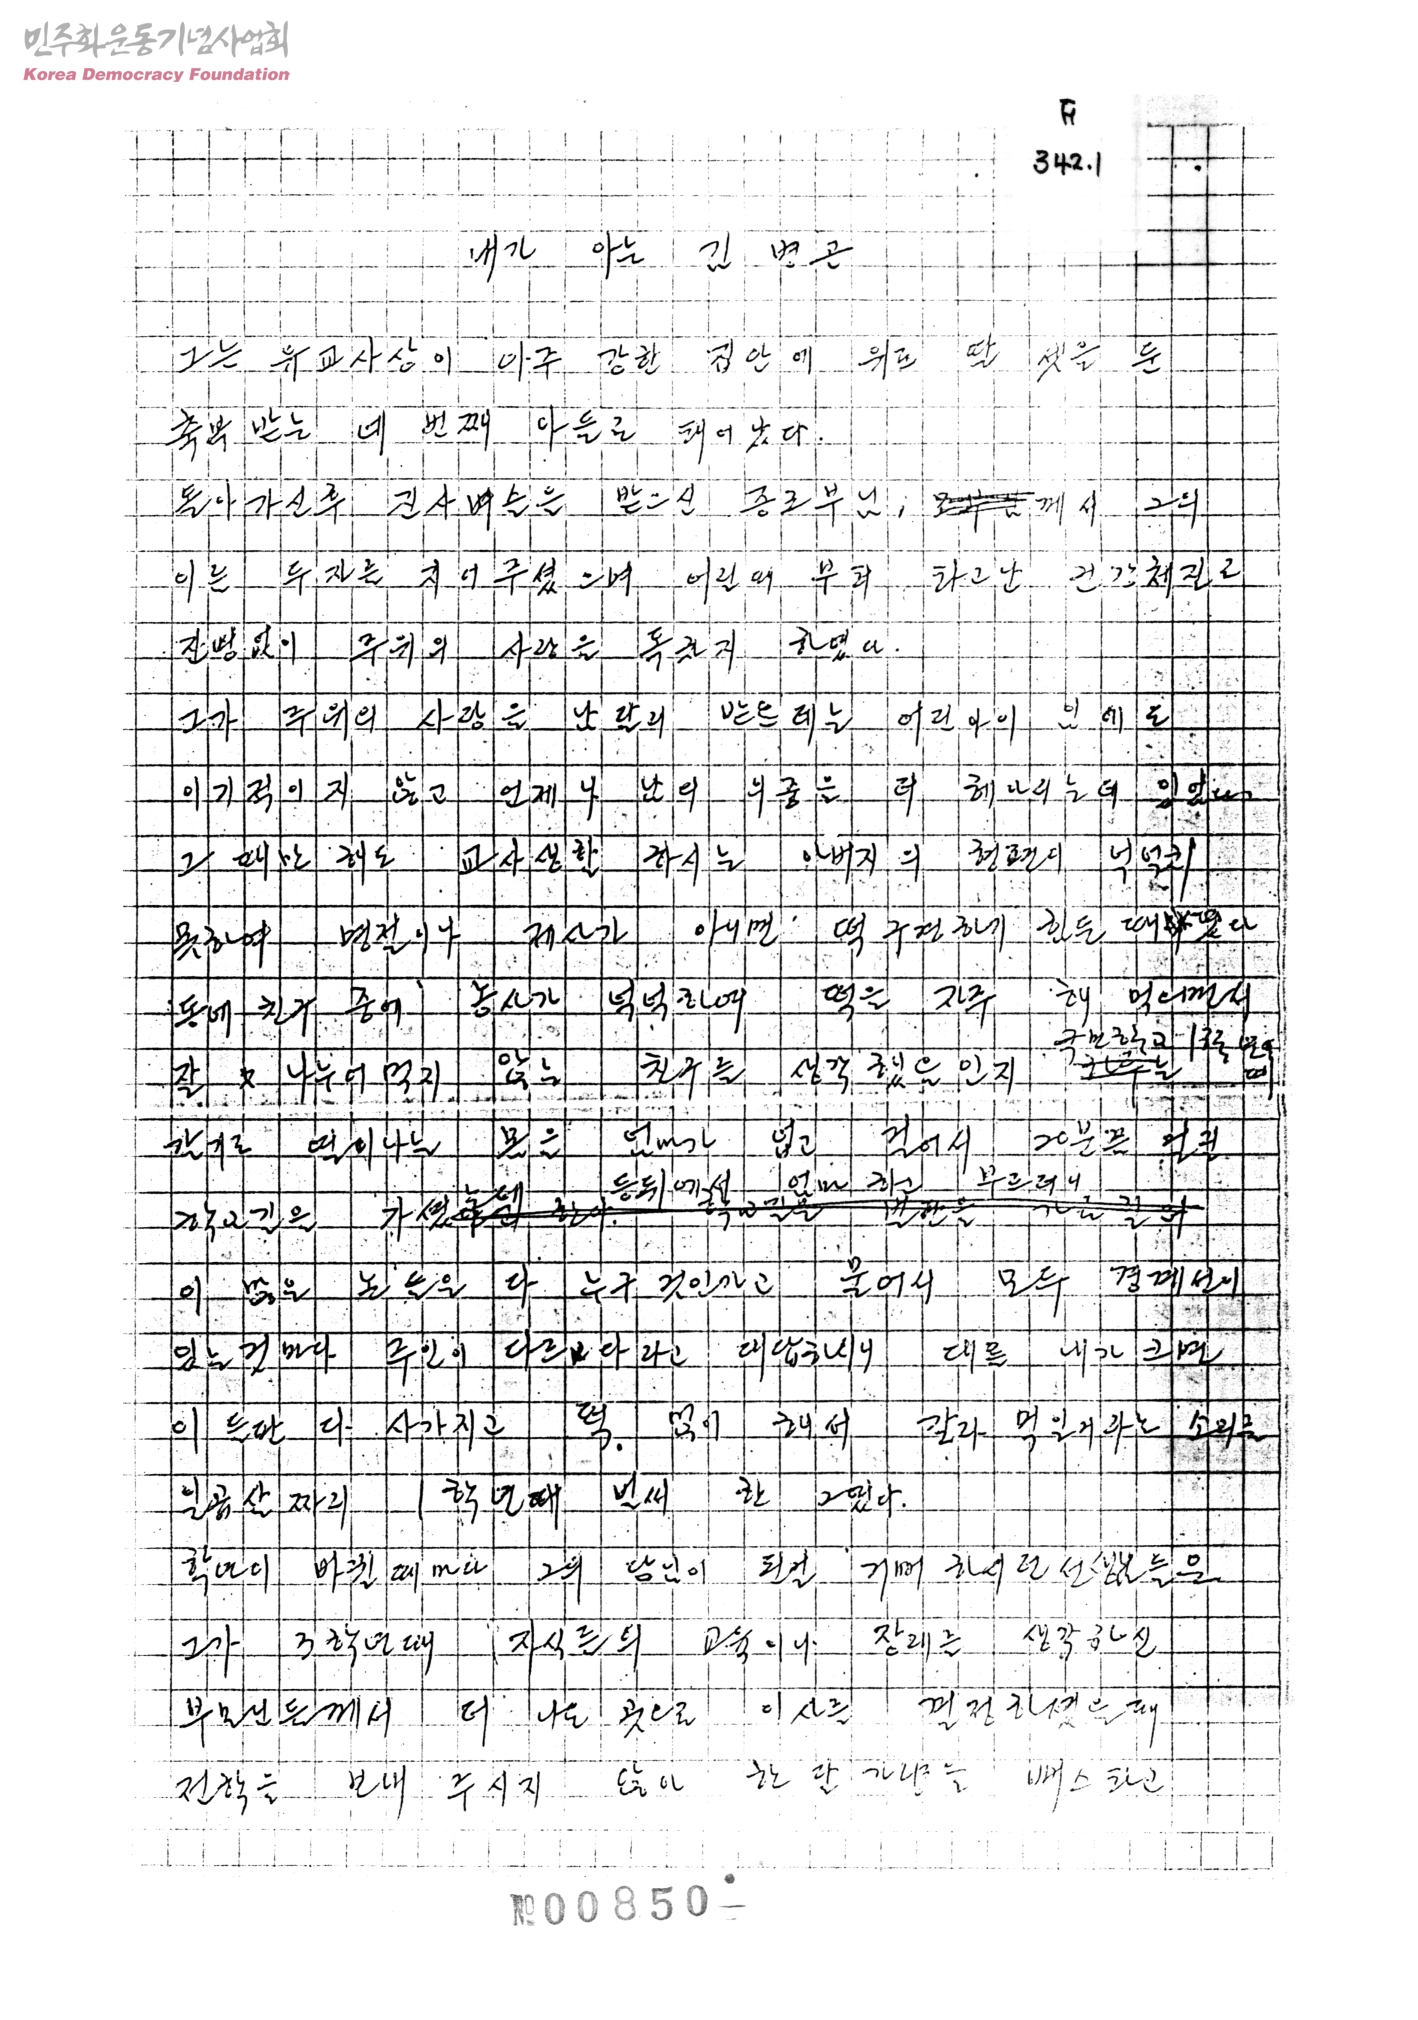 민주화운동기념사업회
Korea Democracy Foundation
342.1
내가 아는 김 병곤
그는 유교사상이 아주 강한 집안에 위로 딸 셋을 둔
축복 받는 네 번째 아들로 태어났다.
돌아가신후 진사벼슬을 받으신 증조부님, 께서 그의
이름 두자를 지어주셨으며 어린때 부터 타고난 건강체질로
잔병없이 주위의 사랑을 독차지 하였다.
그가 주위의 사랑을 남달리 받든테는 어린아이 인에도
이기적이지 않고 언제나 남의 의중을 더 헤아리는데 있었다.
그 때만 해도 교사생활 하시는 아버지의 형편이 넉넉치
못하여 명절이나 제사가 아니면 떡 구경하기 힘든 때였다
동네 친구 중에 농사가 넉넉하여 떡을 자주 해 먹으면서
잘 나누어먹지 않는 친구를 생각했음인지 국민학교 1학년
학교길을 가셨는데 등뒤에선 엄마 하고 부르더니
이 많은 논들은 다 누구것인가고 물어서 모두 경계선이
있는것마다 주인이 다르다라고 대답하시니 대뜸 내가 크면
이 들판 다 사가지고 떡 많이 해서 갈라 먹일거라는 소리를
일곱살 짜리 1학년때 벌써 한 그였다.
학년이 바뀔때마다 그의 담임이 되길 기뻐하시던 선생님들은
그가 3학년때 자식들의 교육이나 장래를 생각하신
부모님들께서 더 나은 곳으로 이사를 결정하셨을때
전학을 보내 주시지 않아 한 달 가량을 뻐스타고
№00850